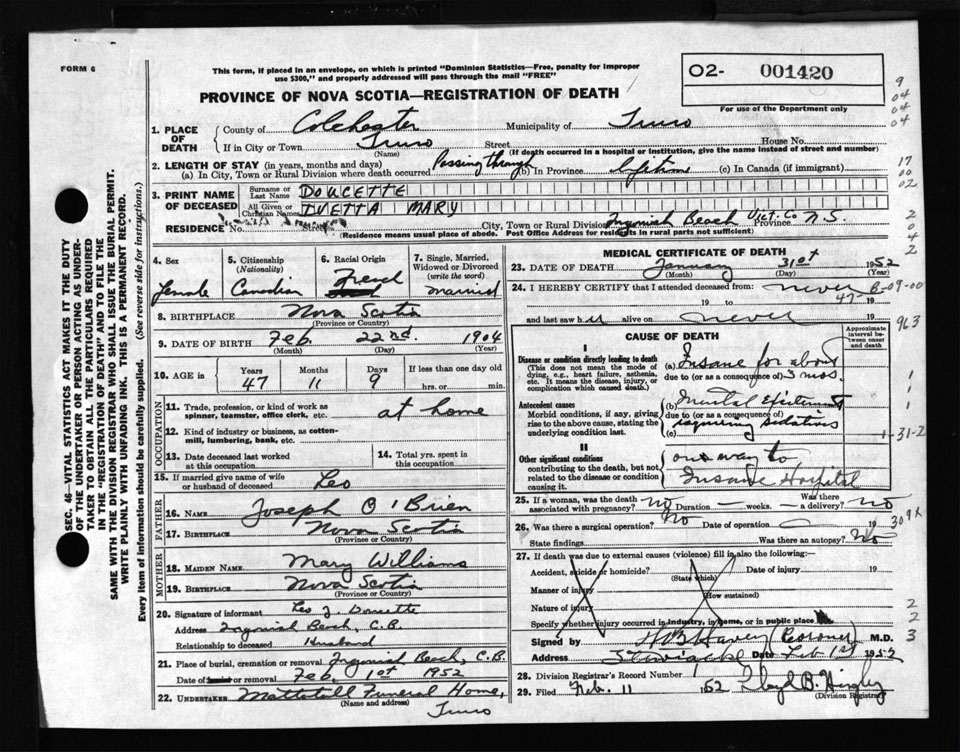 FORM 6
This form, if placed in an envelope, on which is printed "Dominion Statistics—Free, penalty for improper
use $300," and properly addressed will pass through the mail "FREE"
O2- 001420
For use of the Department only
PROVINCE OF NOVA SCOTIA—REGISTRATION OF DEATH
1. PLACE OF DEATH
County of Colchester Municipality of Truro
If in City or Town Truro Street House No.
(Name) (If death occurred in a hospital or institution, give the name instead of street and number)
2. LENGTH OF STAY (in years, months and days)
(a) In City, Town or Rural Division where death occurred Passing through (b) In Province lifetime (c) In Canada (if immigrant)
3. PRINT NAME OF DECEASED
Surname or Last Name DOUCETTE
All Given or Christian Names IVETTA MARY
RESIDENCE No. Street City, Town or Rural Division Ingonish Beach Vict. Co Province N.S.
(Residence means usual place of abode. Post Office Address for residents in rural parts not sufficient)
4. Sex Female
5. Citizenship (Nationality) Canadian
6. Racial Origin French
7. Single, Married, Widowed or Divorced (write the word) Married
8. BIRTHPLACE Nova Scotia
(Province or Country)
9. DATE OF BIRTH Feb. 22nd. 1904
(Month) (Day) (Year)
10. AGE in Years 47 Months 11 Days 9 If less than one day old hrs. or min.
OCCUPATION
11. Trade, profession, or kind of work as spinner, teamster, office clerk, etc. at home
12. Kind of industry or business, as cotton-mill, lumbering, bank, etc.
13. Date deceased last worked at this occupation
14. Total yrs. spent in this occupation
15. If married give name of wife or husband of deceased Leo
FATHER
16. NAME Joseph O'Brien
17. BIRTHPLACE Nova Scotia
(Province or Country)
MOTHER
18. MAIDEN NAME Mary Williams
19. BIRTHPLACE Nova Scotia
(Province or Country)
20. Signature of informant Leo J. Doucette
Address Ingonish Beach, C.B.
Relationship to deceased Husband
21. Place of burial, cremation or removal Ingonish Beach, C.B.
Date of burial or removal Feb. 1st 1952
22. UNDERTAKER Mattatall Funeral Home,
(Name and address) Truro
MEDICAL CERTIFICATE OF DEATH
23. DATE OF DEATH January 31st 1952
(Month) (Day) (Year)
24. I HEREBY CERTIFY that I attended deceased from never
19 to 19
and last saw her alive on never 19
CAUSE OF DEATH
Approximate interval between onset and death
I
Disease or condition directly leading to death
(This does not mean the mode of dying, e.g., heart failure, asthenia, etc. It means the disease, injury, or complication which caused death.)
(a) Insane for about
due to (or as a consequence of) 3 mos.
Antecedent causes
Morbid conditions, if any, giving rise to the above cause, stating the underlying condition last.
(b) Mental Excitement
due to (or as a consequence of)
requiring sedatives
(c)
II
Other significant conditions
contributing to the death, but not related to the disease or condition causing it.
on way to
Insane Hospital
25. If a woman, was the death associated with pregnancy? No Duration — weeks. Was there a delivery? No
26. Was there a surgical operation? No Date of operation 19
State findings Was there an autopsy? No
27. If death was due to external causes (violence) fill in also the following:
Accident, suicide or homicide? (State which) Date of injury 19
Manner of injury (How sustained)
Nature of injury
Specify whether injury occurred in industry, in home, or in public place
Signed by (Coroner) M.D.
Address Stewiacke Date Feb 1st 1952
28. Division Registrar's Record Number 1
29. Filed Feb. 11 1952
(Division Registrar)
SEC. 46—VITAL STATISTICS ACT MAKES IT THE DUTY
OF THE UNDERTAKER OR PERSON ACTING AS UNDER-
TAKER TO OBTAIN ALL THE PARTICULARS REQUIRED
IN THE "REGISTRATION OF DEATH" AND TO FILE THE
SAME WITH THE DIVISION REGISTRAR WHO SHALL ISSUE THE BURIAL PERMIT.
WRITE PLAINLY WITH UNFADING INK. THIS IS A PERMANENT RECORD.
Every item of information should be carefully supplied. (See reverse side for instructions.)
9
04
04
04
17
00
02
2
0
4
2
B-09-00
47
963
1
1
1
1-31-2
309X
2
2
3